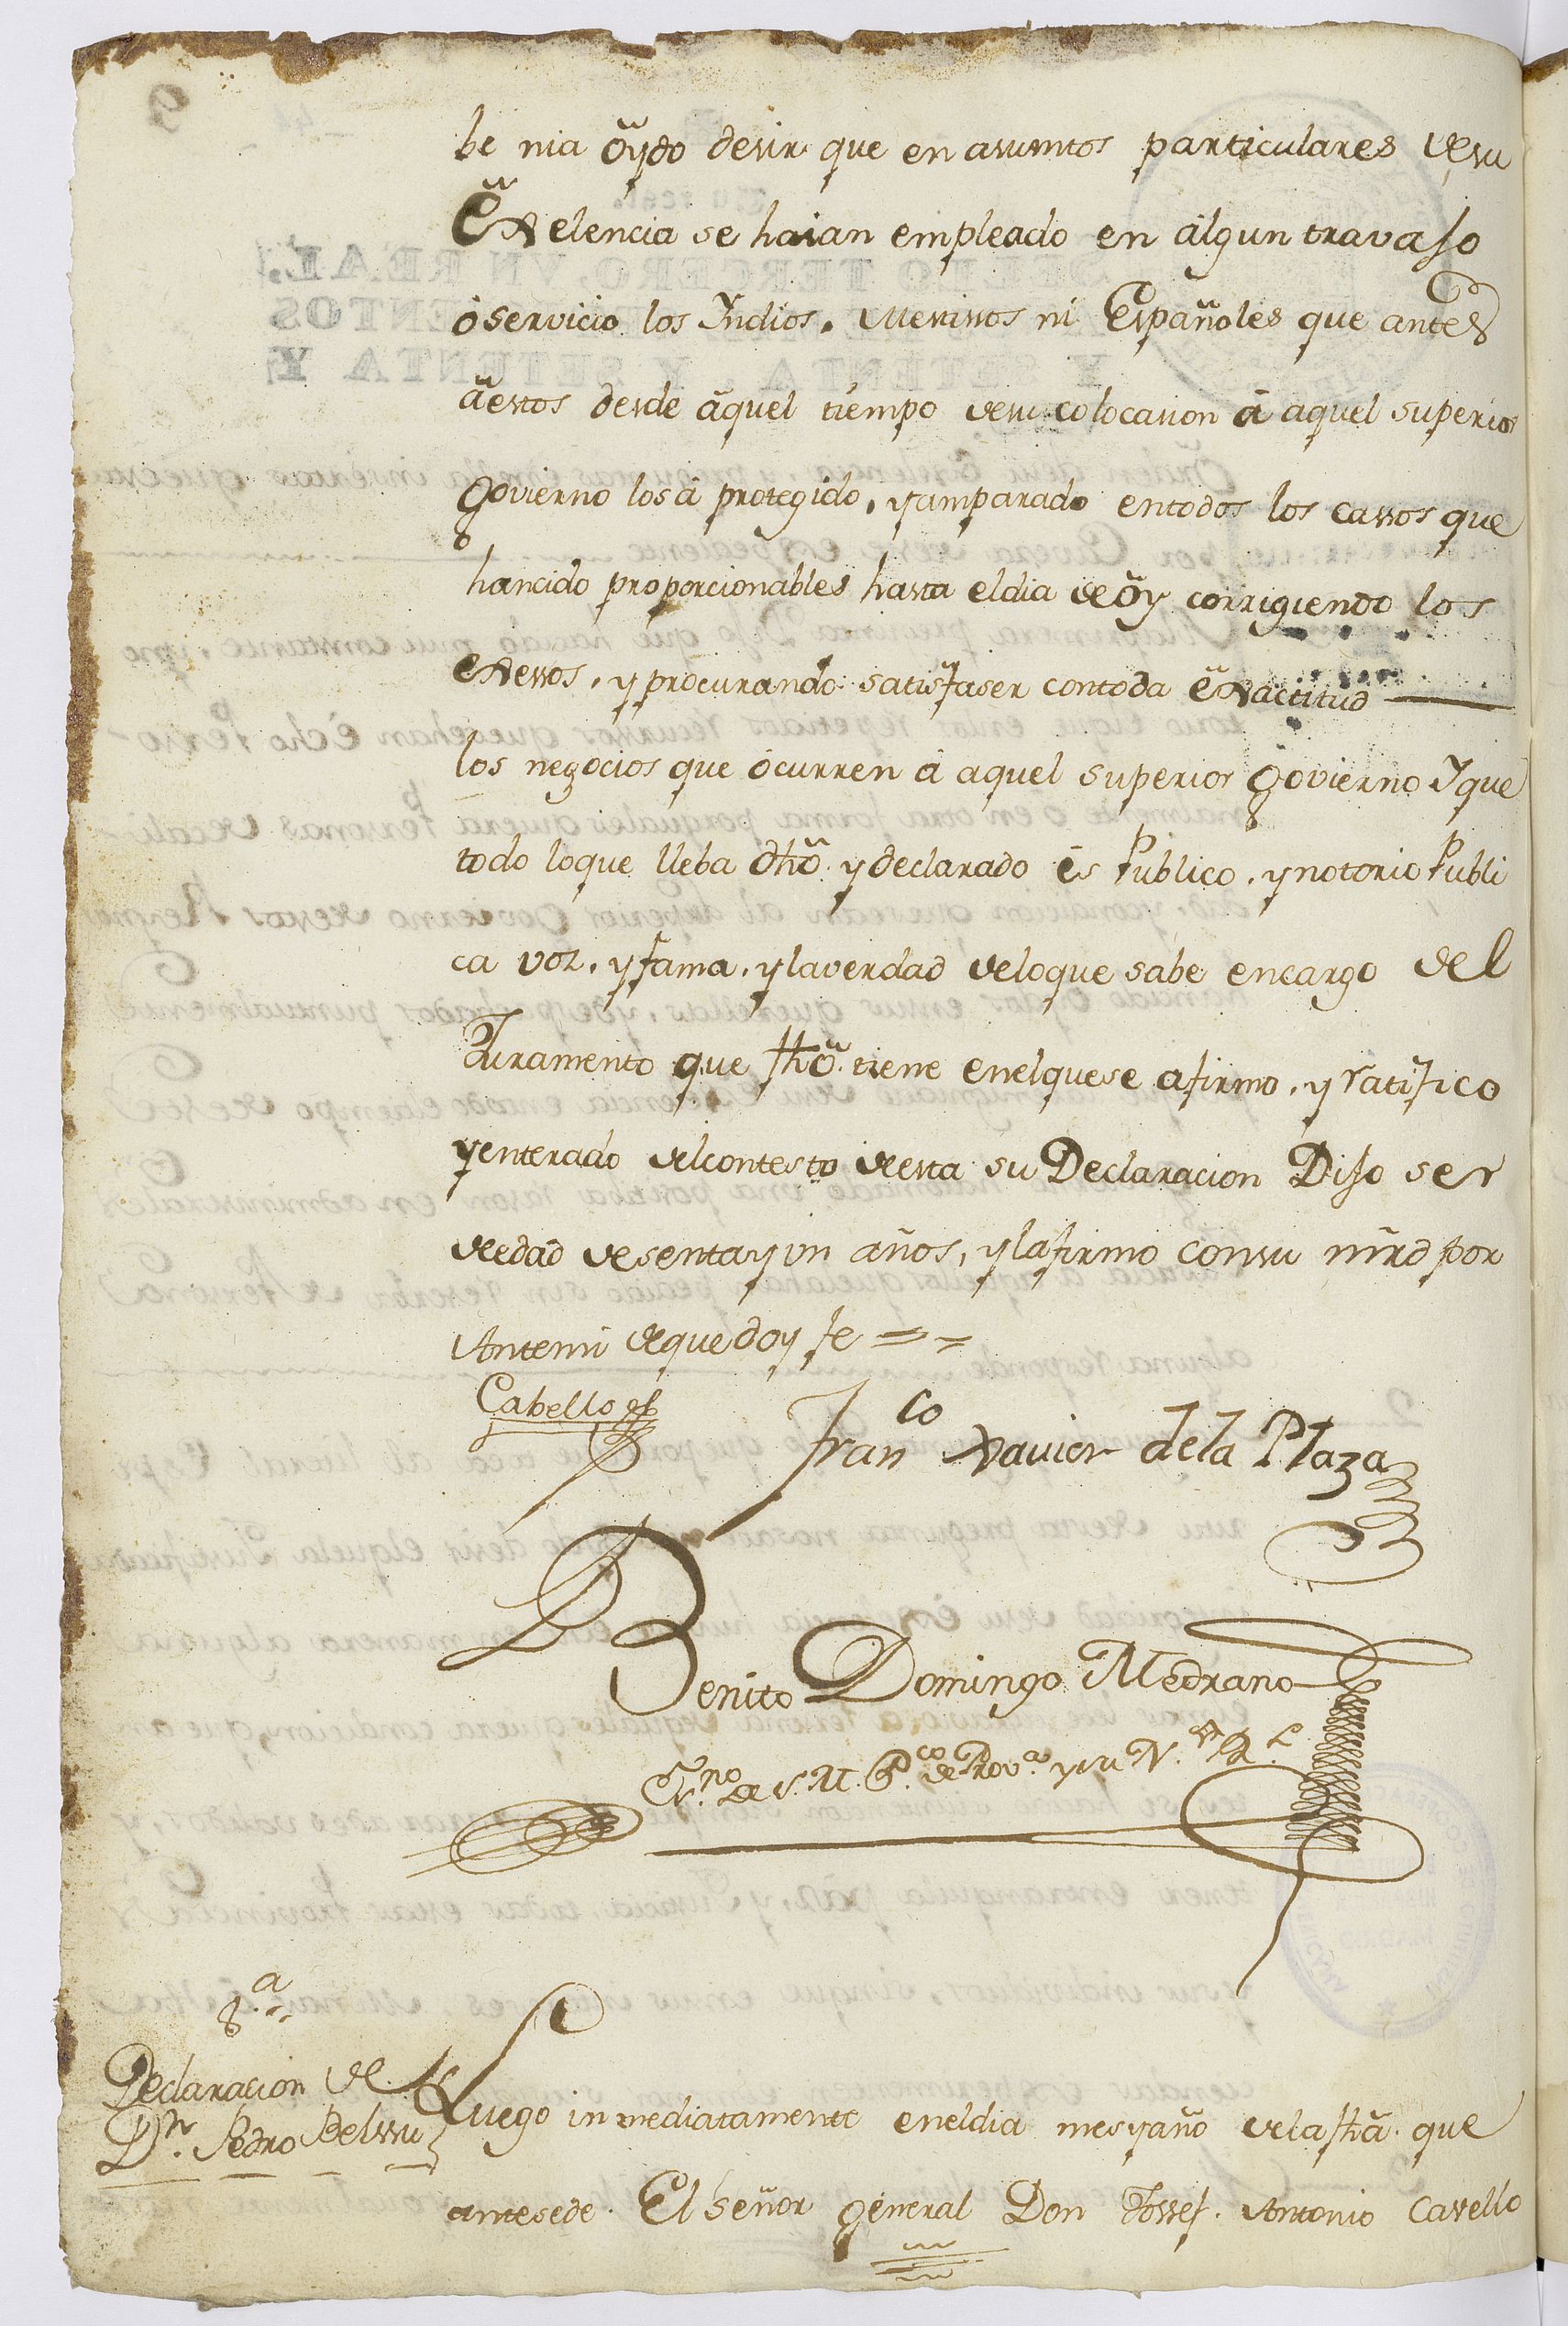 be nia öydo desir que en asuntos particulares desu
Exelencia se haian empleado en älgun travajo
óservicio los Yndios. Mesissos ni Españoles que antes
äestos desde äquel tiempo desu colocasion á aquel superior
Govierno los á protegido, yamparado entodos los cassos que
hancido proporcionables hasta eldia deöy corrigiendo los
exessos, y procurando satisfaser contoda ëxactitud
los negocios que ócurren á aquel superior Govierno Yque
todo loque lleba dhõ. y declarado és Publico, ynotorio Publi
ca voz, yfama, ylaverdad deloque sabe encargo del
Juramento que fhõ. tiene enelquese afirmo, y ratifico
yenterado delcontesto desta su Declaracion Dijo ser
deedad desentayun años, ylafirmo consu mrd por
Antemi dequedoy fe ==
Cabello
Fran.co Xavier dela Plaza
Benito Domingo Medrano
Es.no de S. M. P.co de Prov.a ysu N. R.l
8.a
Declaracion de
D.n Pedro Belssu
Luego inmediatamente eneldia mesyaño delafhã. que
antesede. El Señor General Don Jossef. Antonio Cavello